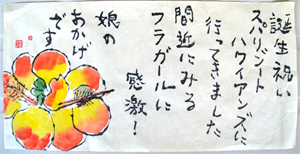 誕生祝い
スパリゾート
ハワイアンズに
行ってきました
間近にみる
フラガールに
感激!
娘の
おかげ
です